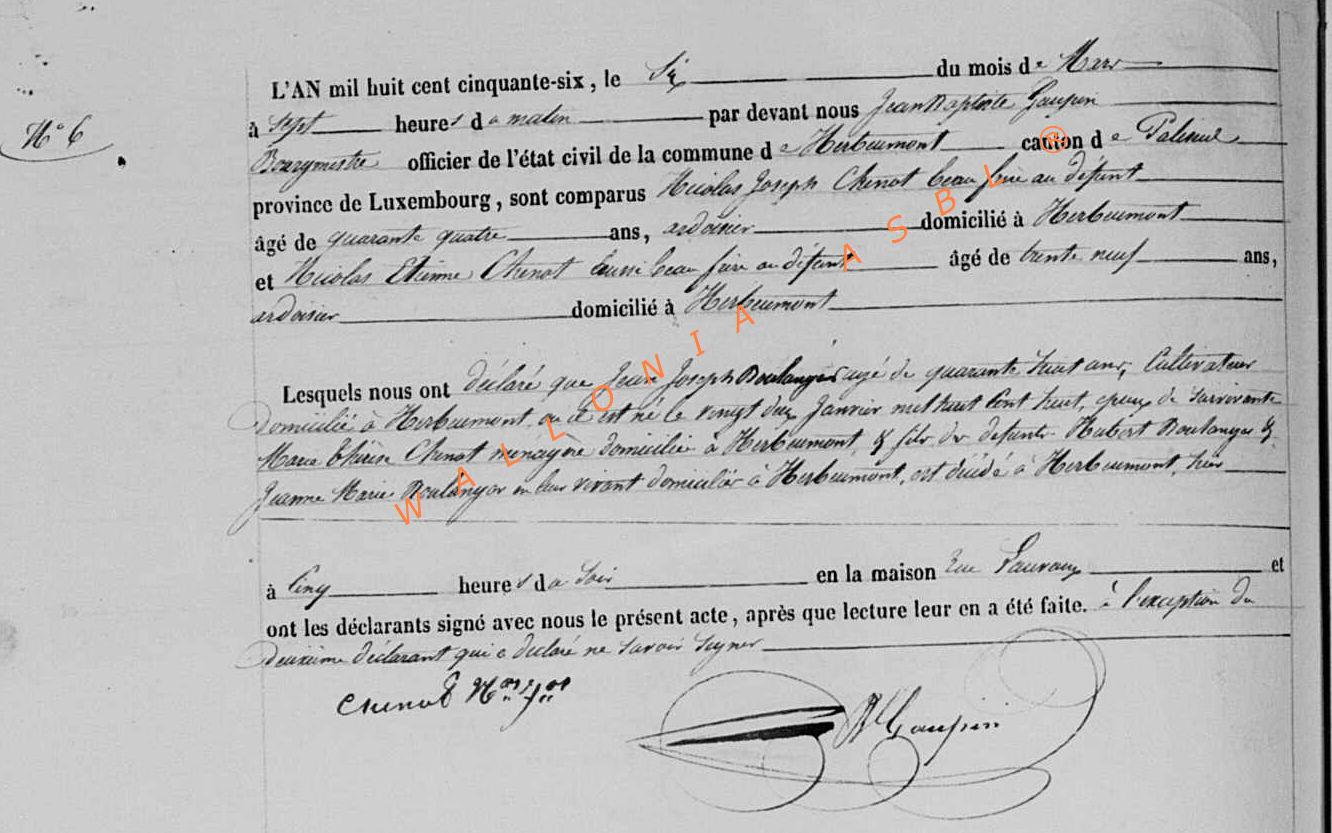 L'AN mil huit cent cinquante-six, le Six du mois de Mars
N° 6
à Sept heures du matin par devant nous Jean Baptiste Gaupin
Bourgmestre officier de l'état civil de la commune de Herbeumont canton de Paliseul
province de Luxembourg, sont comparus Nicolas Joseph Chenot beau frere au défunt
âgé de quarante quatre ans, ardoisier domicilié à Herbeumont
et Nicolas Etienne Chenot aussi beau frère au défunt âgé de trente neuf ans,
ardoisier domicilié à Herbeumont
Lesquels nous ont déclaré que Jean Joseph Boulanger agé de quarante huit ans, Cultivateur
domicilié à Herbeumont, ou il est né le vingt deux Janvier mil huit cent huit, epoux de survivante
Marie thérèse Chenot ménagère domiciliée à Herbeumont, & fils des defunts Hubert Boulanger &
Jeanne Marie Boulanger en leur vivant domiciliés à Herbeumont, est décédé à Herbeumont, hier
à Cinq heures du Soir en la maison rue et
ont les déclarants signé avec nous le présent acte, après que lecture leur en a été faite. à l'exception du
deuxième déclarant qui a declaré ne savoir signer
Chenot Nas Jph
JB Gaupin
WALLONIA ASBL ®